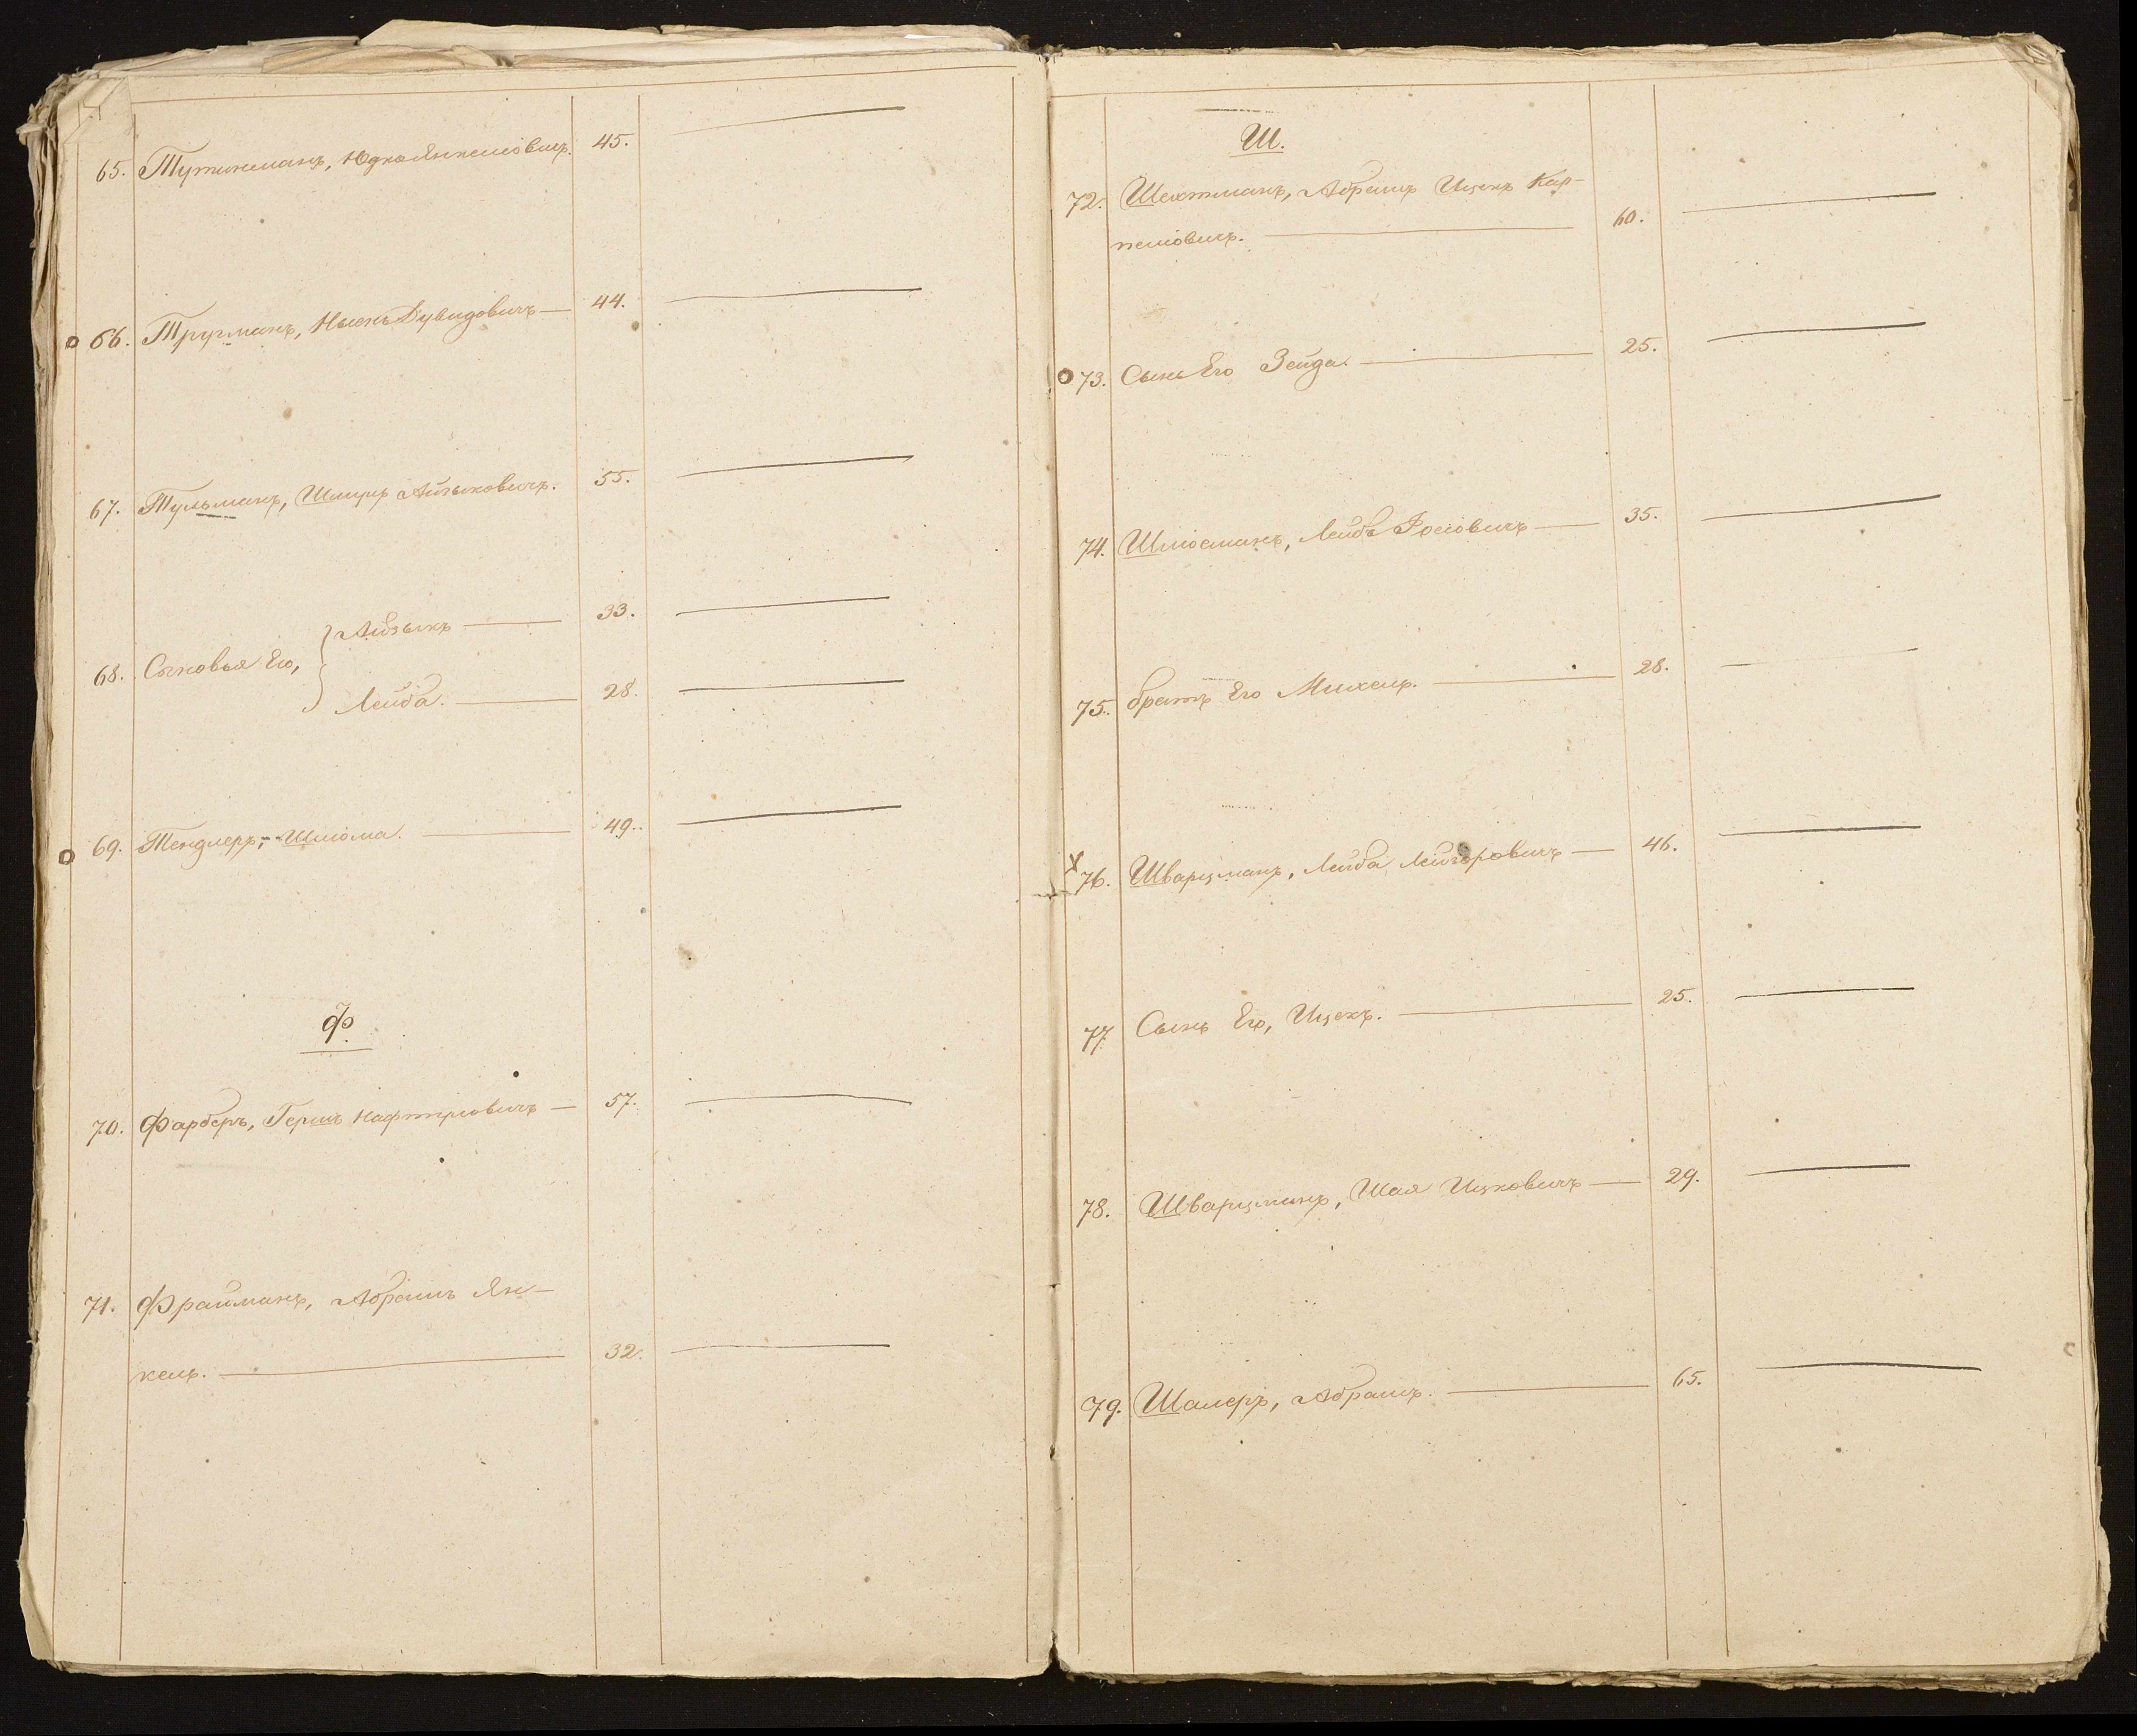 65. Тутинманъ, Юдко Янкелiовичъ. 45.
66. Трурманъ, Нысенъ Дувидовичъ — 44.
67. Тульманъ, Шмулъ Айзыковичъ. 55.
Айзыкъ — 33.
68. Сыновья Его,
Лейба. — 28.
69. Тендлеръ, Шлiома. — 49.
Ф.
70. Фарберъ, Гершъ Нафтулiовичъ — 57.
71. Фрайманъ, Абрамъ Ян-
кель. — 32.
Ш.
72. Шехтманъ, Абрамъ Ицекъ Кар-
пелiовичъ. — 60.
73. Сынъ Его Зейда. — 25.
74. Шлiосманъ, Лейба Iосiовичъ — 35.
75. братъ Его Михель. — 28.
76. Шварцманъ, Лейба Лейзеровичъ — 46.
77. Сынъ Его, Ицекъ. — 25.
78. Шварцманъ, Шая Ицковичъ — 29.
79. Шалеръ, Абрамъ. — 65.